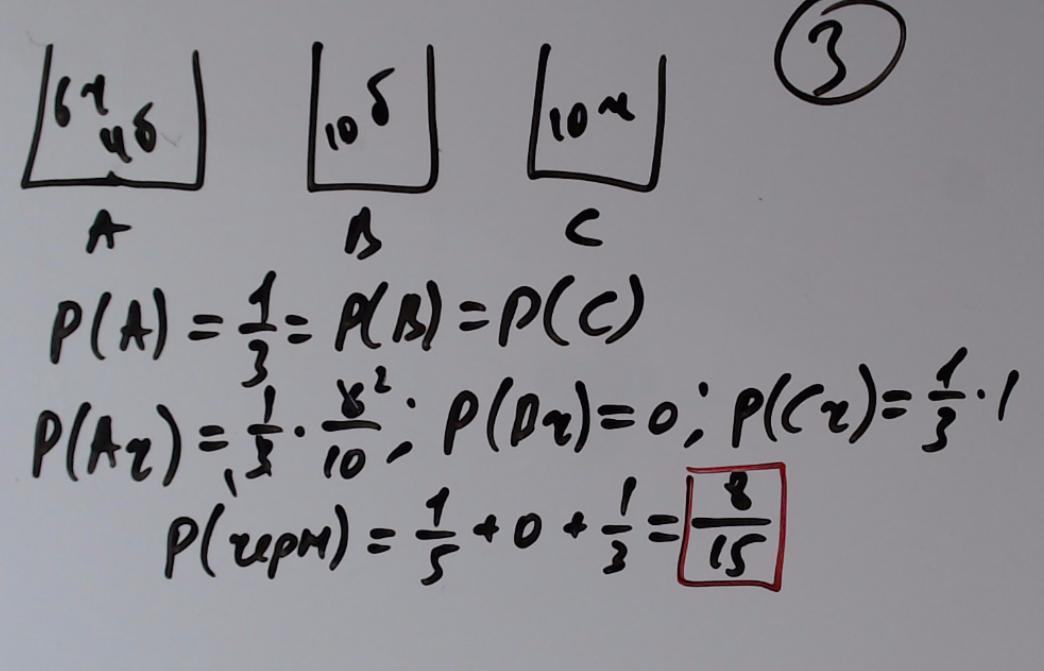 3
6ч 4б 10 б 10 ч
A B C
P(A) = 1/3 = P(B) = P(C)
P(Aч) = 1/3 · 6²/10; P(Bч) = 0; P(Cч) = 1/3 · 1
P(черн) = 1/5 + 0 + 1/3 = 8/15